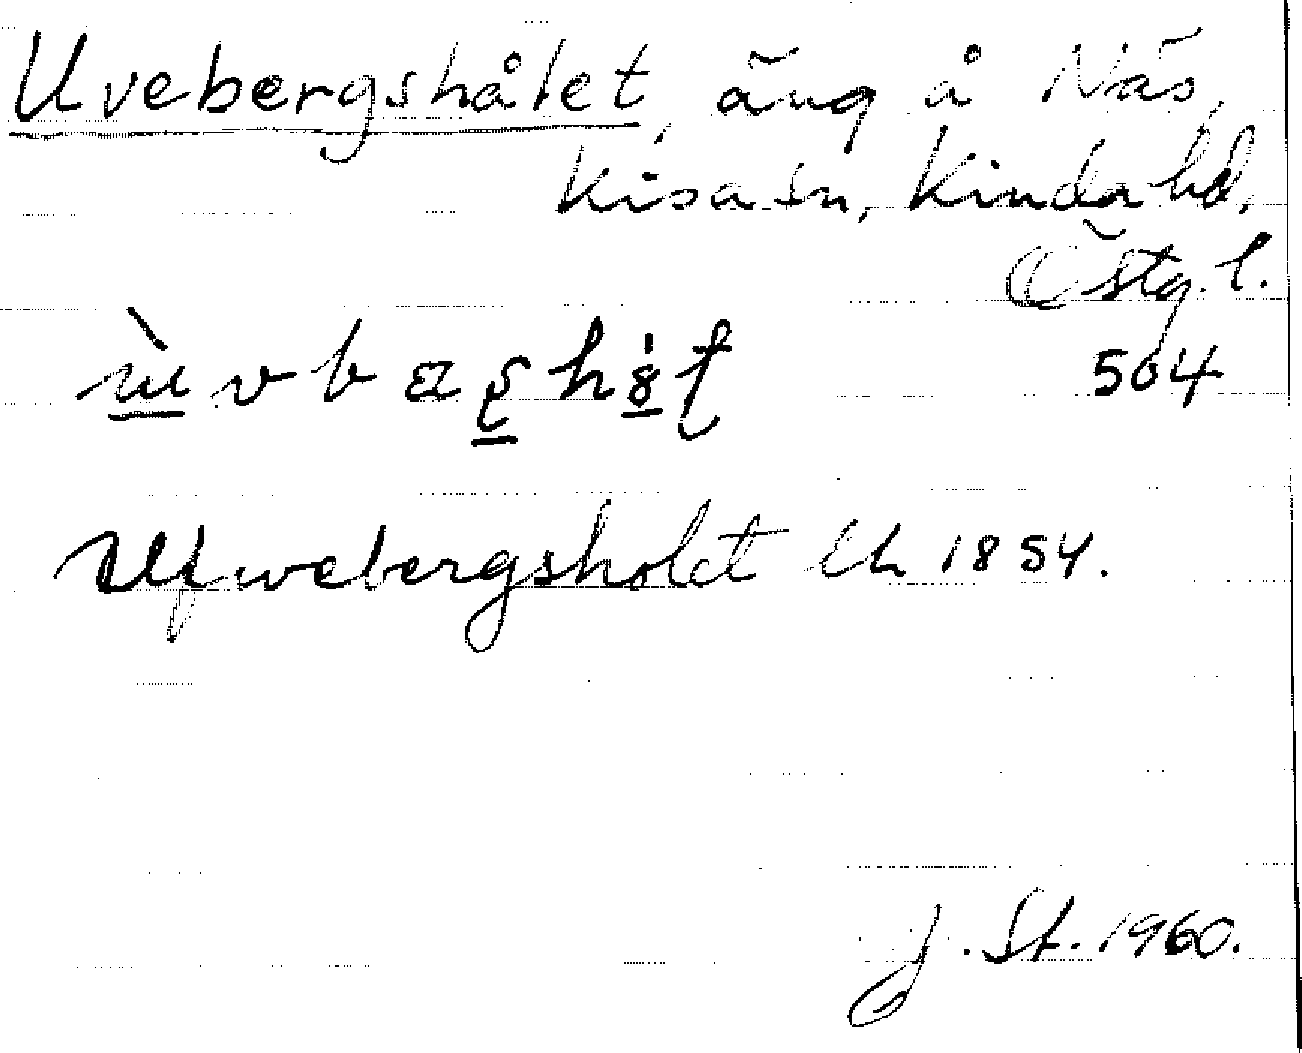 Uvebergshålet, äng å Näs,
Kisa sn, Kinda hd,
Östg. l.
504
Ufwebergsholet Ch 1854.
J. St. 1960.